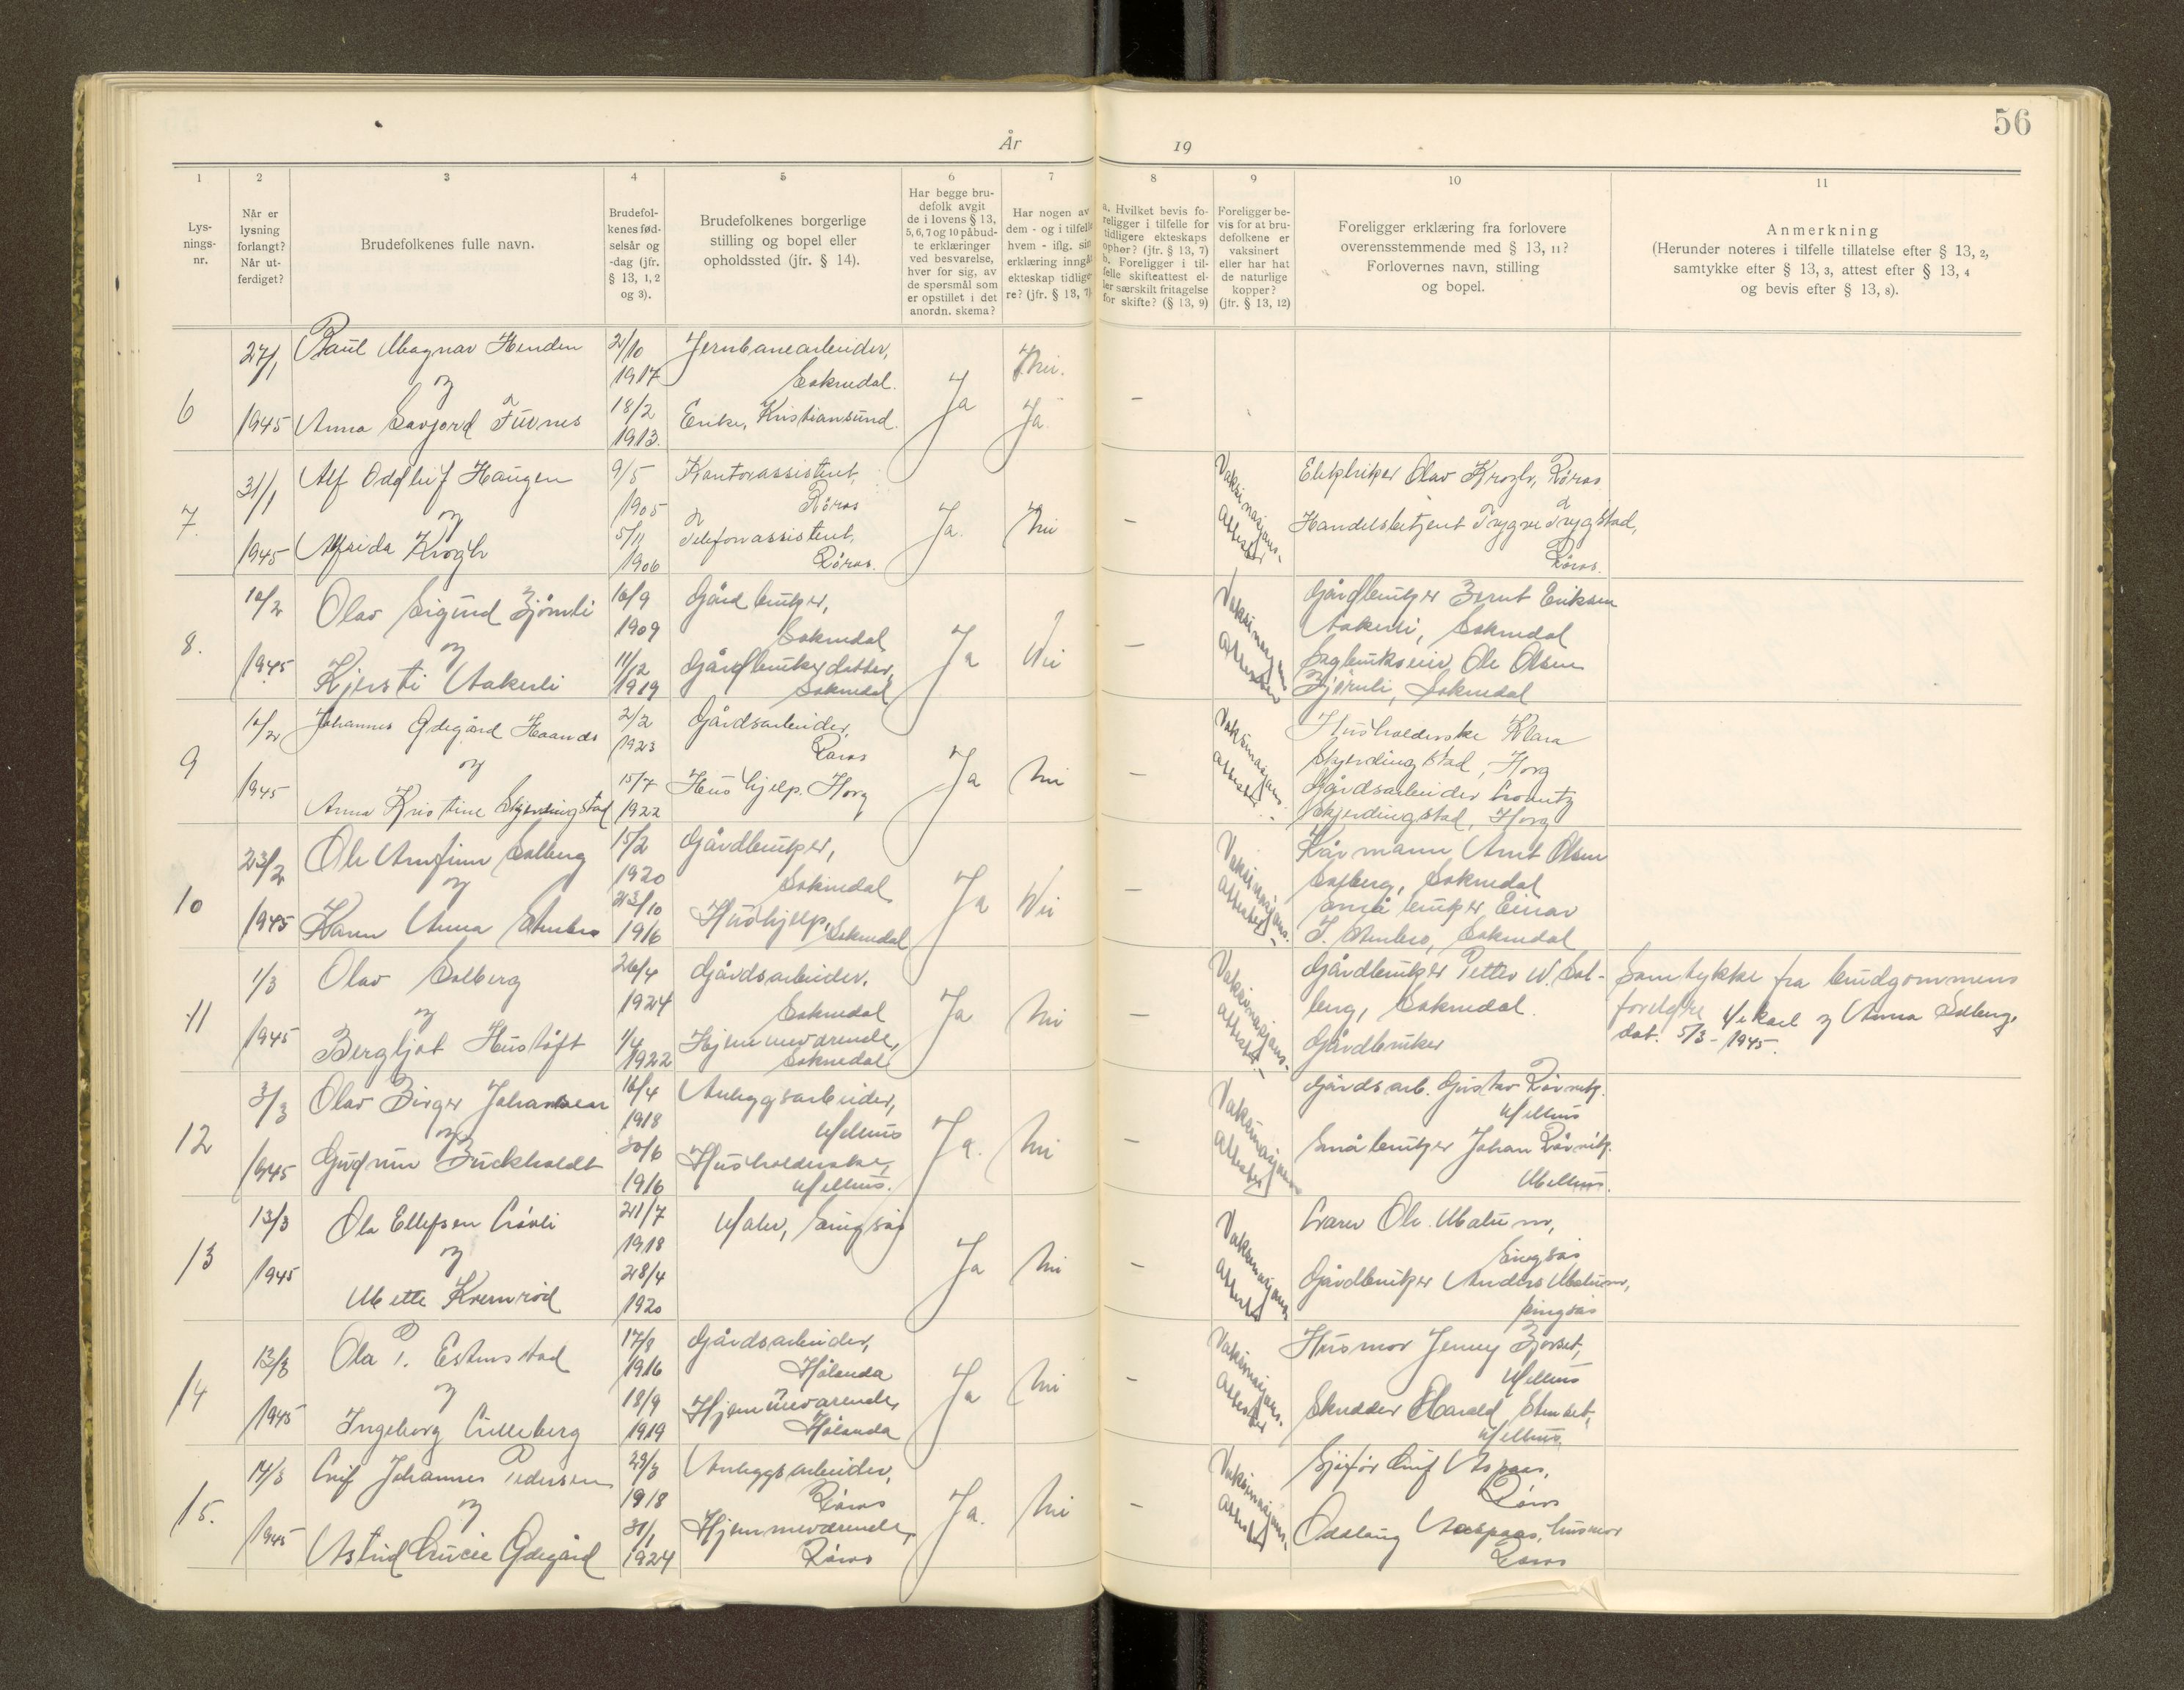 56
År 19
1
2
3
4
5
6
7
8
9
10
11
Lys-
nings-
nr.
Når er
lysning
forlangt?
Når ut-
ferdiget?
Brudefolkenes fulle navn.
Brudefol-
kenes fød-
selsår og
-dag (jfr.
§ 13, 1, 2
og 3).
Brudefolkenes borgerlige
stilling og bopel eller
opholdssted (jfr. § 14).
Har begge bru-
defolk avgit
de i lovens § 13,
5, 6, 7 og 10 påbud-
te erklæringer
ved besvarelse,
hver for sig, av
de spørsmål som
er opstillet i det
anordn. skema?
Har nogen av
dem - og i tilfelle
hvem - iflg. sin
erklæring inngåt
ekteskap tidlige-
re? (jfr. § 13, 7)
a. Hvilket bevis fo-
religger i tilfelle for
tidligere ekteskaps
ophør? (jfr. § 13, 7)
b. Foreligger i til-
felle skifteattest el-
ler særskilt fritagelse
for skifte? (§ 13, 9)
Foreligger be-
vis for at bru-
defolkene er
vaksinert
eller har hat
de naturlige
kopper?
(jfr. § 13, 12)
Foreligger erklæring fra forlovere
overensstemmende med § 13, 11?
Forlovernes navn, stilling
og bopel.
Anmerkning
(Herunder noteres i tilfelle tillatelse efter § 13, 2,
samtykke efter § 13, 3, attest efter § 13, 4
og bevis efter § 13, 8).
6
27/1
1945
Paul Magnar Henden
og
Anna Savjord Tuvnes
2/10
1917
18/2
1913.
Jernbanearbeider,
Soknedal.
Enke, Kristiansund.
Ja
Nei.
Ja
-
7.
31/1
1945
Alf Oddleif Haugen
og
Alfrida Krogh
9/5
1905
5/11
1906
Kontorassistent,
Røros
Telefonassistent,
Røros.
Ja.
Nei
-
Vaksinasjons-
attester
Elektriker Olav Krogh, Røros
Handelsbetjent Trygve Trygstad,
Røros.
8.
10/2
1945
Olav Sigurd Bjørnli
og
Kjersti Aakerli
16/9
1909
11/12
1919
Gårdbruker,
Soknedal
Gårdbrukerdatter,
Soknedal
Ja
Nei
-
Vaksinasjons
attester
Gårdbruker Bernt Eriksen
Aakerli, Soknedal
Sagbrukseier Ole Olsen
Bjørnli, Soknedal
9
10/2
1945
Johannes Ødegård Haanes
og
Anna Kristine Skjerdingstad
2/2
1923
15/7
1922
Gårdsarbeider,
Røros
Hushjelp. Horg
Ja
Nei
-
Vaksinasjons-
attester
Husholderske Klara
Skjerdingstad, Horg
Gårdsarbeider Lorentz
Skjerdingstad, Horg
10
23/2
1945
Ole Arnfinn Solberg
og
Karen Anna
15/2
1920
23/10
1916
Gårdbruker,
Soknedal
Hushjelp, Soknedal
Ja
Nei
-
Vaksinasjons-
attester
Kårmann Arnt Olsen
Solberg, Soknedal
Småbruker Einar
Soknedal
11
1/3
1945
Olav Solberg
og
Bergljot Hustøft
26/4
1924
1/4
1922
Gårdsarbeider.
Soknedal
Hjemmeværende,
Soknedal
Ja
Nei
-
Vaksinasjons-
attester
Gårdbruker Petter N. Sol-
berg, Soknedal.
Gårdbruker
Samtykke fra brudgommens
foreldre Mekael og Anna Solberg,
dat. 5/3 - 1945.
12
3/3
1945
Olav Birger Johansen
og
Gudrun Buckholdt
16/4
1918
30/6
1916
Anleggsarbeider,
Melhus
Husholderske,
Melhus.
Ja.
Nei
-
Vaksinasjons
attester
Gårdsarb. Gustav
Melhus
Småbruker Johan
Melhus.
13
13/3
1945
Ole Ellefsen Løvli
og
Mette Kvernrød
21/7
1918
28/4
1920
Maler, Singsås
Ja
Nei
-
Vaksinasjons
attester
Ole. Malum,
Singsås
Gårdbruker Anders Malum,
Singsås
14
13/3
1945
Ola P. Estenstad
og
Ingeborg Lilleberg
17/8
1916
18/9
1919
Gårdsarbeider,
Hølonda
Hjemmeværende,
Hølonda
Ja
Nei
-
Vaksinasjons-
attester
Husmor Jenny Borset,
Melhus
Skredder Harald Stenset,
Melhus.
15.
14/3
1945
Leif Johannes Pedersen
og
Astrid Lucie Ødegård
29/3
1918
31/1
1924
Anleggsarbeider,
Røros
Hjemmeværende,
Røros
Ja.
Nei
-
Vaksinasjons-
attester
Sjåfør Leif Aspaas,
Røros
Oddlaug Aaspaas, husmor
Røros